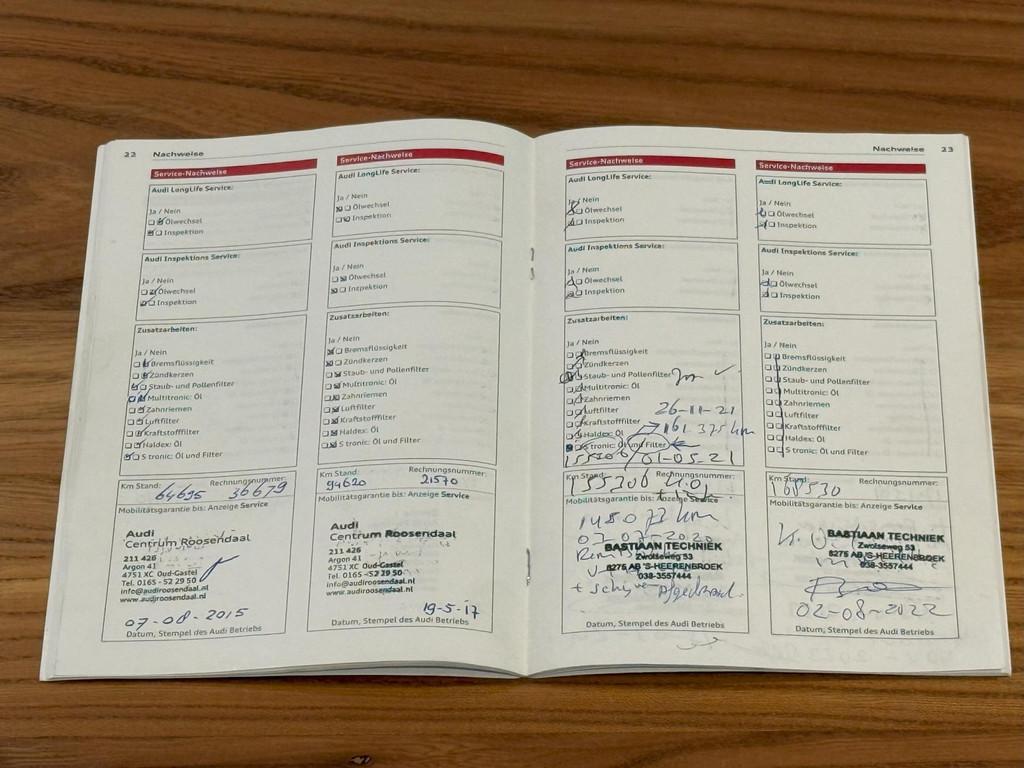 22 Nachweise
Service-Nachweise
Audi LongLife Service:
Ja / Nein
Ölwechsel
Inspektion
Audi Inspektions Service:
Ja / Nein
Ölwechsel
Inspektion
Zusatzarbeiten:
Ja / Nein
Bremsflüssigkeit
Zündkerzen
Staub- und Pollenfilter
Multitronic: Öl
Zahnriemen
Luftfilter
Kraftstofffilter
Haldex: Öl
S tronic: Öl und Filter
Km Stand: Rechnungsnummer:
64695 36679
Mobilitätsgarantie bis: Anzeige Service
Audi
Centrum Roosendaal
211 426
Argon 41
4751 XC Oud-Gastel
Tel. 0165 - 52 29 50
info@audiroosendaal.nl
www.audiroosendaal.nl
07-08-2015
Datum, Stempel des Audi Betriebs
Service-Nachweise
Audi LongLife Service:
Ja / Nein
Ölwechsel
Inspektion
Audi Inspektions Service:
Ja / Nein
Ölwechsel
Inspektion
Zusatzarbeiten:
Ja / Nein
Bremsflüssigkeit
Zündkerzen
Staub- und Pollenfilter
Multitronic: Öl
Zahnriemen
Luftfilter
Kraftstofffilter
Haldex: Öl
S tronic: Öl und Filter
Km Stand: Rechnungsnummer:
94620 21570
Mobilitätsgarantie bis: Anzeige Service
Audi
Centrum Roosendaal
211 426
Argon 41
4751 XC Oud-Gastel
Tel. 0165 - 52 29 50
info@audiroosendaal.nl
www.audiroosendaal.nl
19-5-17
Datum, Stempel des Audi Betriebs
Nachweise 23
Service-Nachweise
Audi LongLife Service:
Ja / Nein
Ölwechsel
Inspektion
Audi Inspektions Service:
Ja / Nein
Ölwechsel
Inspektion
Zusatzarbeiten:
Ja / Nein
Bremsflüssigkeit
Zündkerzen
Staub- und Pollenfilter
Multitronic: Öl
Zahnriemen
Luftfilter 26-11-21
Kraftstofffilter 161 375 km
Haldex: Öl
S tronic: Öl und Filter
155306 01-05-21
Km Stand: Rechnungsnummer:
155306
Mobilitätsgarantie bis: Anzeige Service
148073 km
07-07-2020
BASTIAAN TECHNIEK
Zwolseweg 53
8275 AB 'S-HEERENBROEK
038-3557444
Datum, Stempel des Audi Betriebs
Service-Nachweise
Audi LongLife Service:
Ja / Nein
Ölwechsel
Inspektion
Audi Inspektions Service:
Ja / Nein
Ölwechsel
Inspektion
Zusatzarbeiten:
Ja / Nein
Bremsflüssigkeit
Zündkerzen
Staub- und Pollenfilter
Multitronic: Öl
Zahnriemen
Luftfilter
Kraftstofffilter
Haldex: Öl
S tronic: Öl und Filter
Km Stand: Rechnungsnummer:
168530
Mobilitätsgarantie bis: Anzeige Service
BASTIAAN TECHNIEK
Zwolseweg 53
8275 AB 'S-HEERENBROEK
038-3557444
02-08-2022
Datum, Stempel des Audi Betriebs